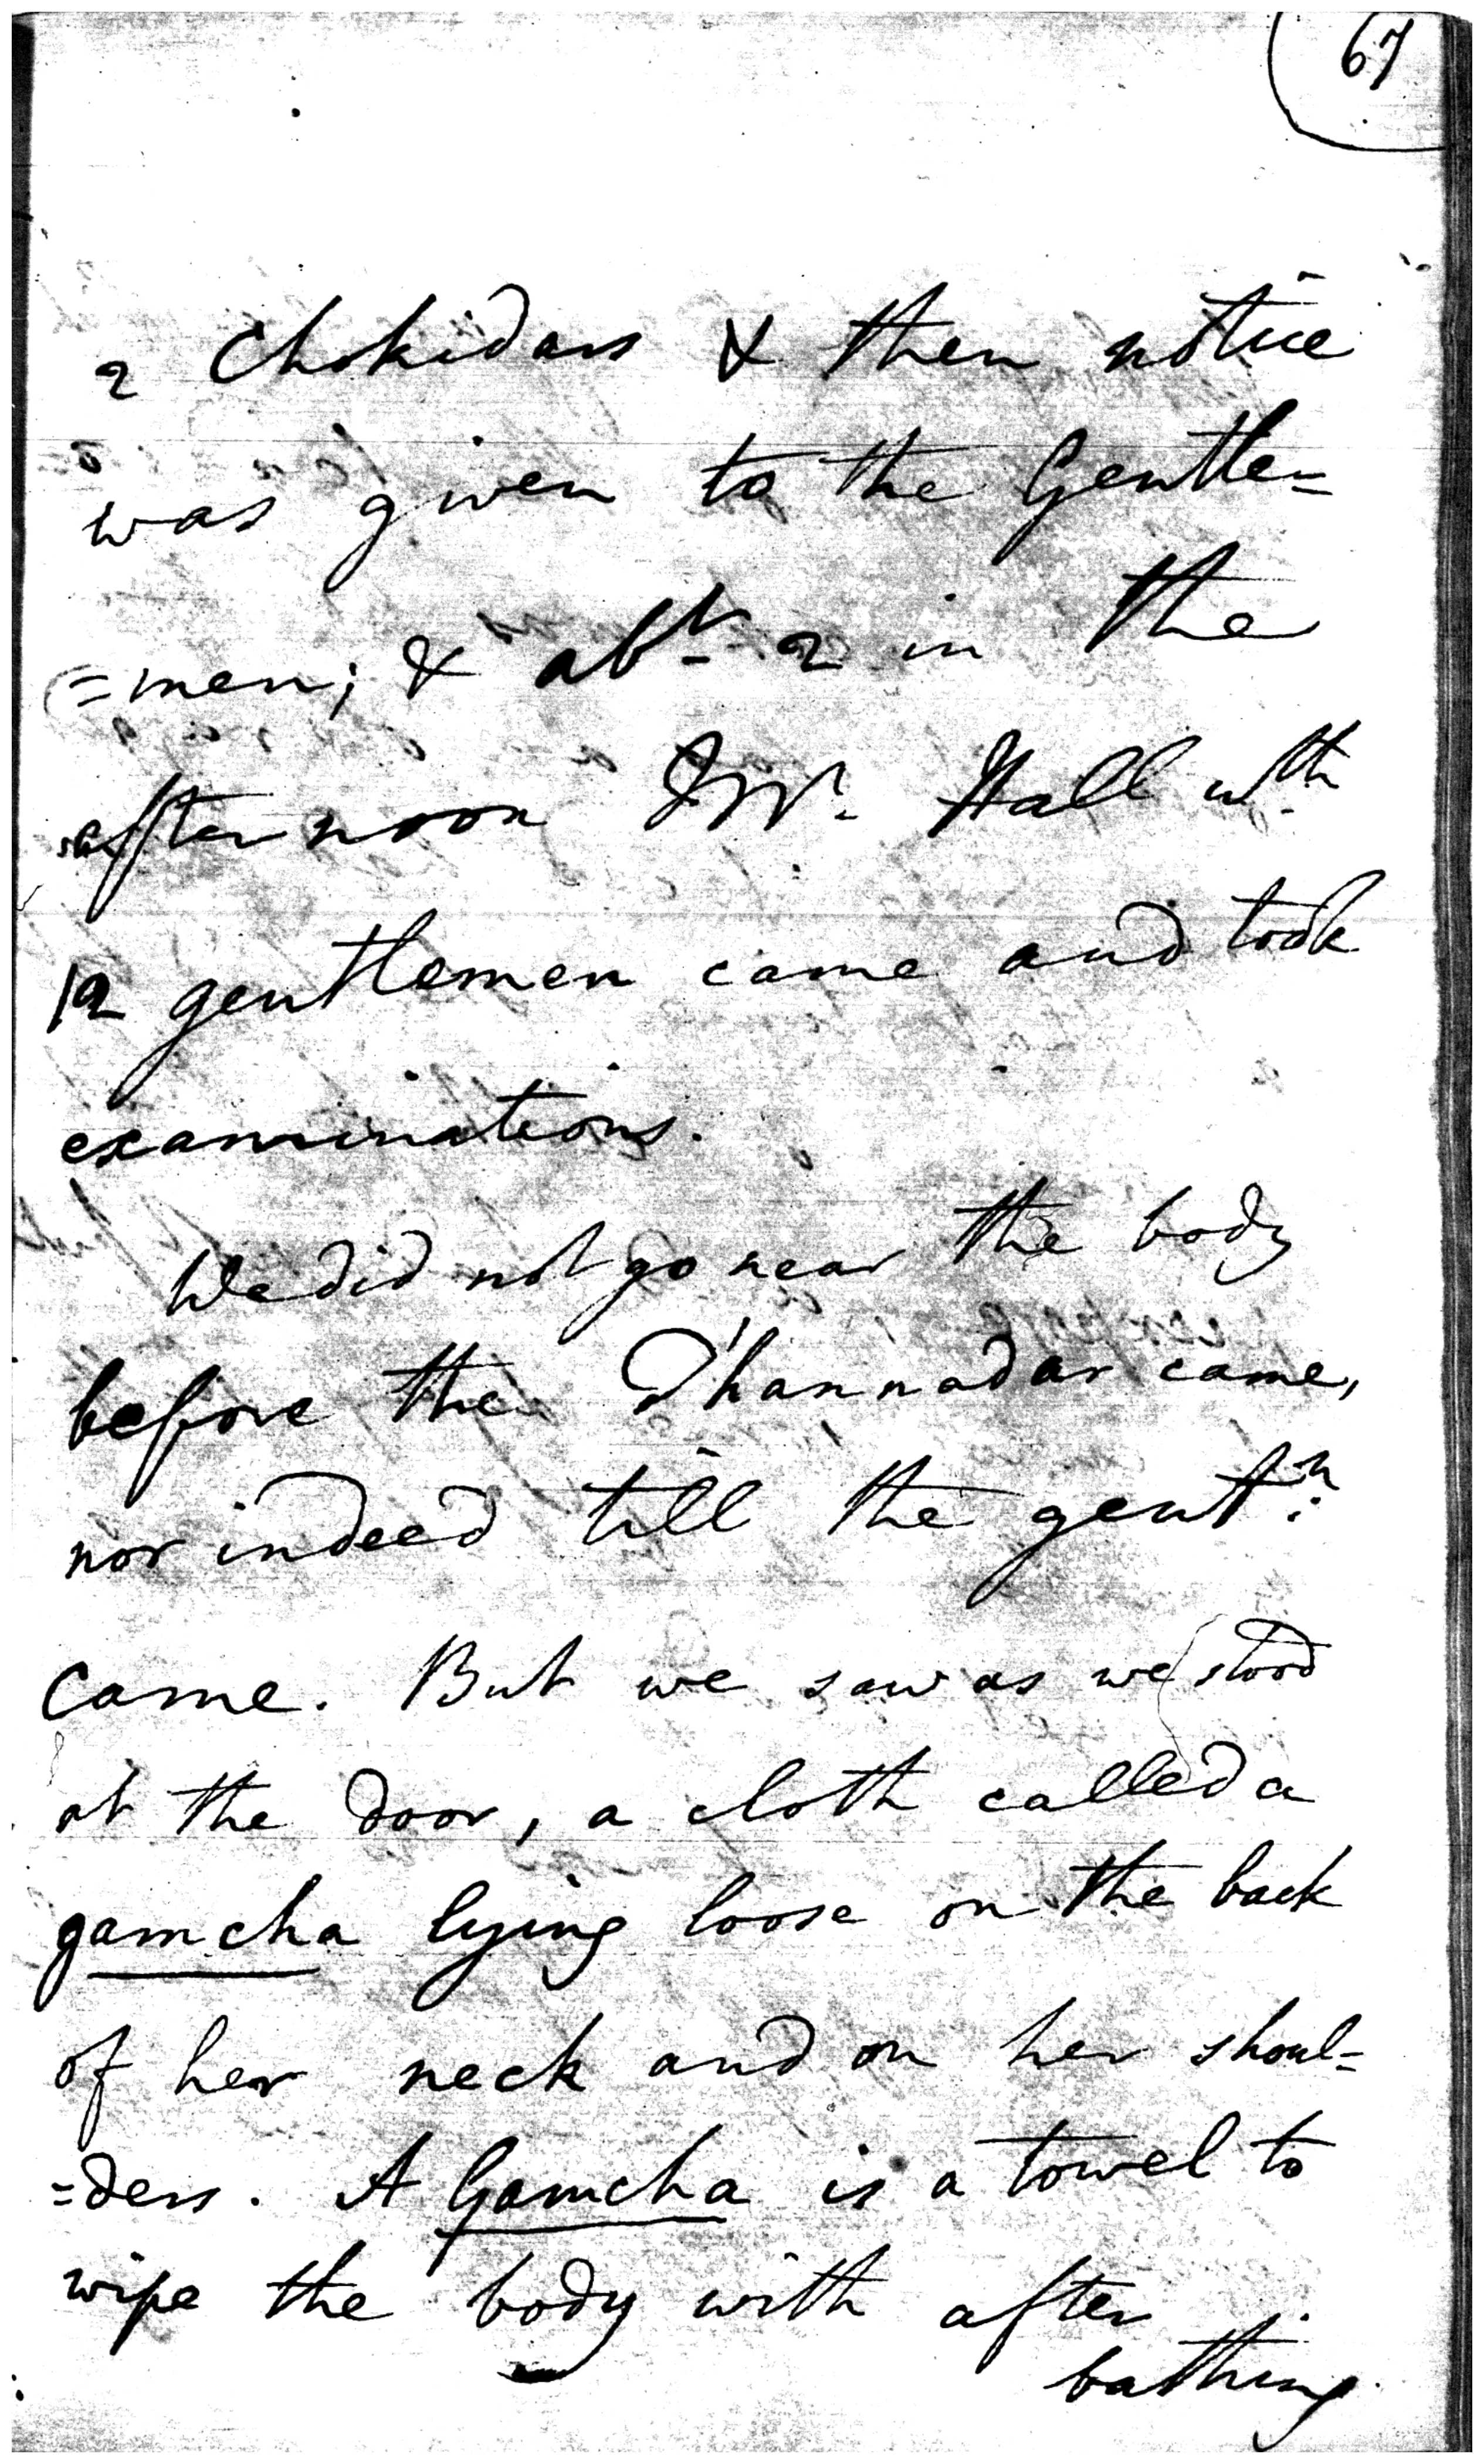 67
2 Chokidars & then notice
was given to the Gentle=
=men; & abt. 2 in the
afternoon Mr. Hall wth
12 gentlemen came and took
examinations.
We did not go near the body
before the D'hannadar came,
nor indeed till the gentn.
came. But we saw as we stood
at the door, a cloth called a
gamcha lying loose on the back
of her neck and on her shoul=
=ders. A Gamcha is a towel to
wipe the body with after
bathing